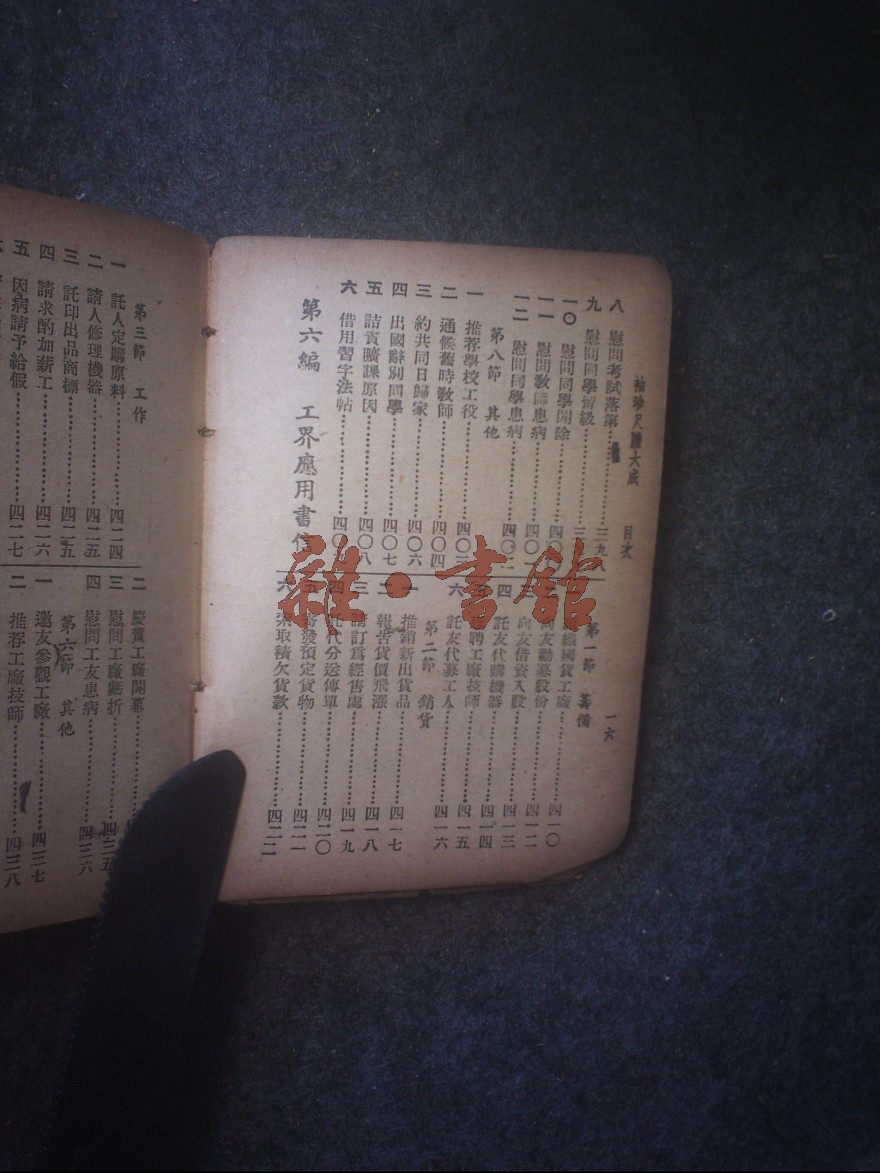 袖珍尺牘大成 目次 一六
八 慰問考試落第 三九八
九 慰問同學留級
一〇 慰問同學開除
一一 慰問教師患病
一二 慰問同學患病 四〇二
第八節 其他
一 推荐學校工役
二 通候舊時教師 四〇四
三 約共同日歸家 四〇六
四 出國辭別同學 四〇七
五 詰責曠課原因 四〇八
六 借用習字法帖
第六編 工界應用書信
第一節 籌備
國貨工廠 四一〇
友勸募股份 四一二
向友借資入股 四一三
四 託友代購機器 四一四
聘工廠技師 四一五
六 託友代募工人 四一六
第二節 銷貨
一 推銷新出貨品 四一七
二 報告貨價飛漲 四一八
三 訂爲經售處 四一九
託代分送傳單 四二〇
發預定貨物 四二一
六 索取積欠貨款 四二二
第三節 工作
一 託人定購原料 四二四
二 請人修理機器 四二五
三 託印出品商標 四二五
四 請求酌加薪工 四二六
五 因病請予給假 四二七
二 慶賀工廠開幕
三 慰問工廠虧折
四 慰問工友患病 四三六
第六節 其他
一 邀友參觀工廠 四三七
二 推荐工廠技師 四三八
雜·書館